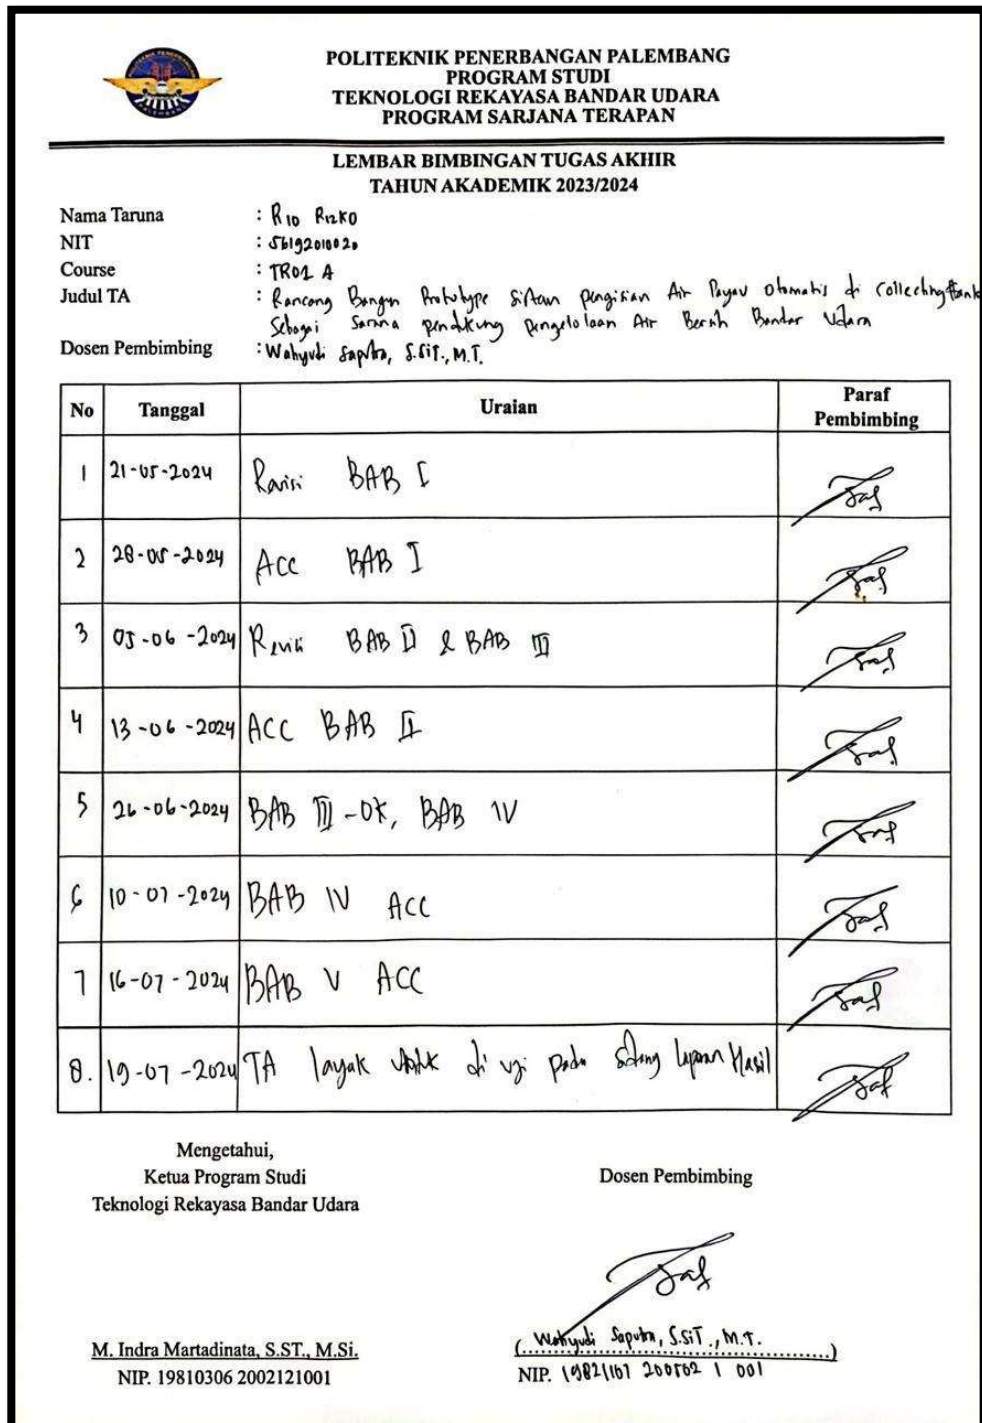 POLITEKNIK PENERBANGAN PALEMBANG
PROGRAM STUDI
TEKNOLOGI REKAYASA BANDAR UDARA
PROGRAM SARJANA TERAPAN
LEMBAR BIMBINGAN TUGAS AKHIR
TAHUN AKADEMIK 2023/2024
Nama Taruna : Rio Rizko
NIT : 56192010020
Course : TR01 A
Judul TA : Rancang Bangun Prototype Sistem pengisian Air Payau Otomatis di Collecting Tank
Sebagai Sarana pendukung pengelolaan Air Bersih Bandar Udara
Dosen Pembimbing : Wahyudi Saputra, S.SiT., M.T.
No Tanggal Uraian Paraf Pembimbing
1 21-05-2024 Revisi BAB I
2 28-05-2024 Acc BAB I
3 05-06-2024 Revisi BAB II & BAB III
4 13-06-2024 ACC BAB II
5 26-06-2024 BAB III - OK, BAB IV
6 10-07-2024 BAB IV ACC
7 16-07-2024 BAB V ACC
8. 19-07-2024 TA layak untuk di uji pada sidang laporan Hasil
Mengetahui,
Ketua Program Studi
Teknologi Rekayasa Bandar Udara
Dosen Pembimbing
M. Indra Martadinata, S.ST., M.Si.
NIP. 19810306 2002121001
(Wahyudi Saputra, S.SiT., M.T.)
NIP. 200502 1 001